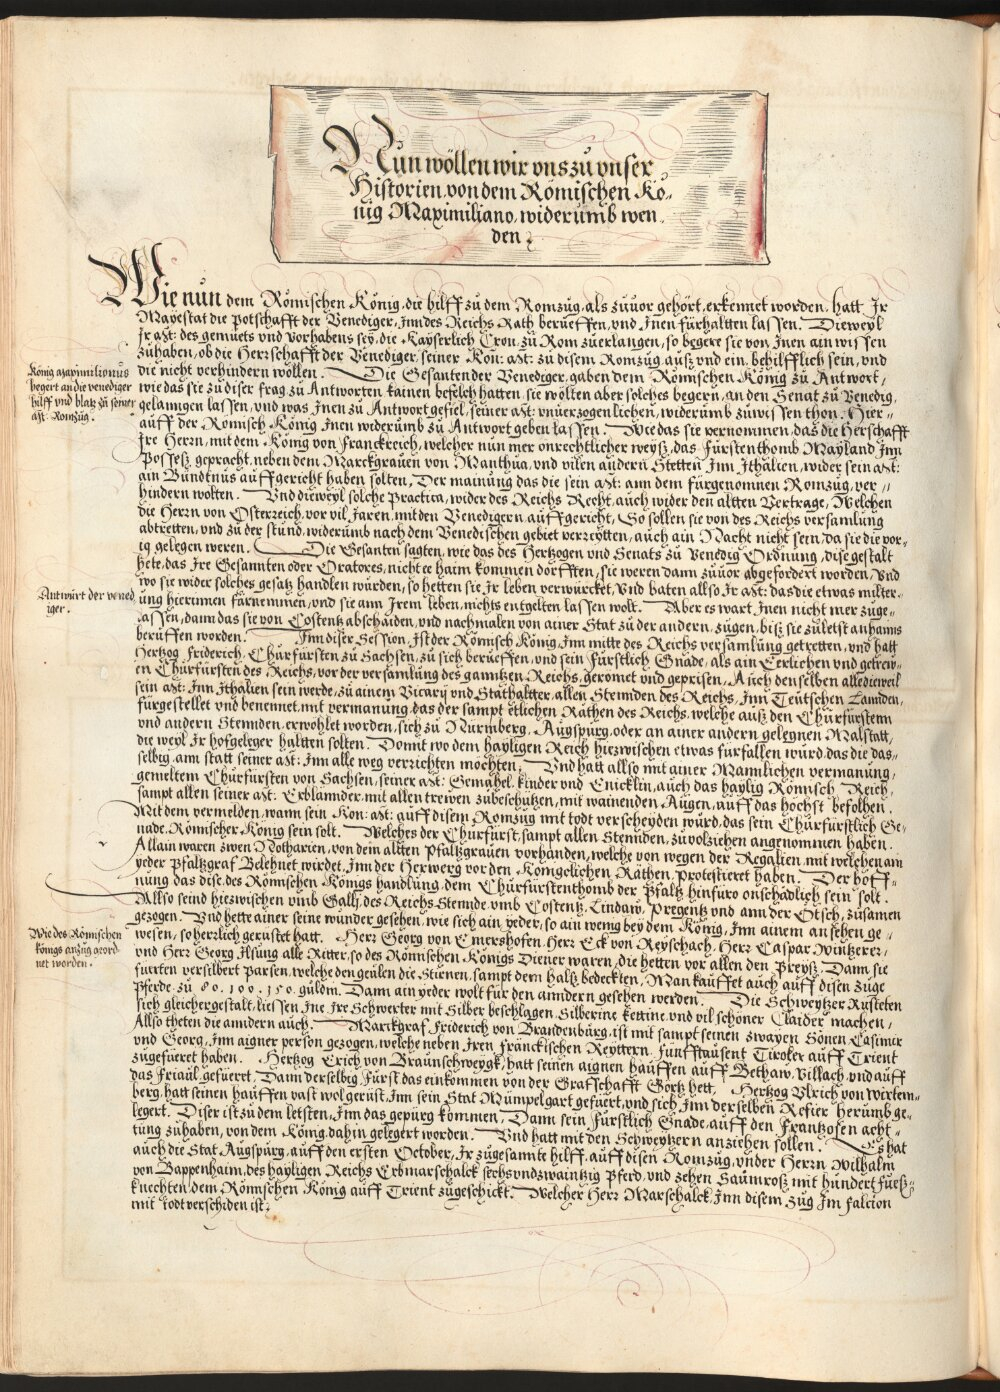 Nun wöllen wir vns zu vnser
Historien, von dem Römischen Kö„
nig Maximiliano, widerumb wen„
den
Wie nun dem Römischen König, die hilff zu dem Romzug, als zuuor gehört, erkennet worden, hatt Ir
Mayestat die Potschafft der Venediger, Inn des Reichs Rath berüeffen, vnd Inen fürhaltten lassen. Dieweyl
Ir Mt: des gemüets vnd vorhabens sey, die Kayserlich Cron, zu Rom zuerlangen, so begere sie von Inen ain wissen
zuhaben, ob die Herrschafft der Venediger, seiner Kön: Mt: zu disem Romzug, auß vnd ein, behilfflich sein, vnd
die nicht verhindern wöllen. Die Gesanten der Venediger, gaben dem Römischen König zu Antwort,
wie das sie zu diser frag zu Antworten kainen befelch hatten, sie wölten aber solches begern, an den Senat zu Venedig,
gelanngen lassen, vnd was Inen zu Antwort gefiel, seiner Mt: vnuerzogenlichen, widerumb zuwissen thon. Hier„
auff der Römisch König Inen widerumb zu Antwort geben lassen. Wie das sie vernommen, das die Herschafft
Ire Herrn, mit dem König von Franckreich, welcher nun mer onrechtlicher weyß, das Fürstenthomb Mayland Inn
Posseß gepracht, neben dem Marckgrauen von Manthua, vnd vilen andern Stetten Inn Ithalien, wider sein Mt:
ain Bündtnus auffgericht haben solten, Der mainung das die sein Mt: ann dem fürgenomen Romzug, ver„
hindern wolten. Vnd dieweyl solche Practica, wider des Reichs Recht, auch wider den altten Vertrage, Welchen
die Herrn von Osterreich, vor vil Jaren, mit den Venedigern auffgericht, So sollen sie von des Reichs versamlung
abtretten, vnd zu der stund, widerumb nach dem Venedischen gebiet verreytten, auch ain Nacht nicht sein, da sie die vor„
ig gelegen weren. Die Gesanten sagten, wie das des Hertzogen vnd Senats zu Venedig Ordnung, dise gestalt
hete, das Ire Gesannten oder Oratores, nicht ee haim kommen dörfften, sie weren dann zuuor abgefordert worden, Vnd
wo sie wider solches gesatz handlen würden, so hetten sie Ir leben verwürcket, Vnd baten allso Ir Mt: das die etwas milter„
ung hierinnen fürnemmen, vnd sie ann Irem leben, nichts entgelten lassen wolt. Aber es wart Inen nicht mer zuge„
lassen, dann das sie von Costentz abschaiden, vnd nachmalen von ainer Stat zu der andern, zügen, biß sie zuletst anhaims
berüffen worden. Inn diser Session, Ist der Römisch König, Inn mitte des Reichs versamlung getretten, vnd hatt
Hertzog Friderich, Churfürsten zu Sachsen, zu sich berüeffen, vnd sein Fürstlich Gnade, als ain Eerlichen vnd getrew„
en Churfürsten des Reichs, vor der versamlung des ganntzen Reichs, gerömet vnd geprisen, Auch denselben alledieweil
sein Mt: Inn Ithalien sein werde, zu ainem Vicary vnd Stathaltter, allen Stennden des Reichs, Inn Teütschen Lannden,
fürgestellet vnd benennet, mit vermanung, das der sampt etlichen Räthen des Reichs, welche auß den Churfürsten
vnd andern Stennden, erwöhlet worden, sich zu Nürmberg, Augspurg, oder an ainer andern gelegnen Malstatt,
die weyl Ir hofgeleger haltten solten. Domit wo dem hayligen Reich hiezwischen etwas fürfallen würd, das die das„
selbig, ann statt seiner Mt: Inn alle weg verrichten möchten. Vnd hatt allso mit ainer Mannlichen vermanung,
gemeltem Churfürsten von Sachsen, seiner Mt: Gemahel, kinder vnd Enicklin, auch das haylig Römisch Reich,
sampt allen seiner Mt: Erblännder, mit allen trewen zubeschützen, mit wainenden Augen, auff das höchst befolhen.
Mit dem vermelden, wann sein Kön: Mt: auff disem Romzug mit todt verscheyden würd, das sein Churfürstlich Ge„
nade, Römischer König sein solt. Welches der Churfürst, sampt allen Stennden, zuvolziehen angenommen haben.
Allain waren zwen Notharien, von dem altten Pfaltzgrauen vorhanden, welche von wegen der Regalien, mit welchen ain
yeder Pfaltzgraf Belehnet wirdet, Inn der Herwerg vor den Königclichen Räthen, Protestieret haben. Der hoff„
nung das dise, des Römischen Königs handlung, dem Churfürstenthomb der Pfaltz hinfüro onschädlich sein solt.
Allso seind hiezwischen vmb Galli, des Reichs Stennde vmb Costentz, Lindaw, Pregentz vnd ann der Etsch, zusamen
gezogen. Vnd hette ainer seine wunder gesehen, wie sich ain yeder, so ain wenig bey dem König, Inn ainem ansehen ge„
wesen, so herrlich gerüstet hatt. Herr Georg von Emershofen, Herr Eck von Reyschach, Herr Caspar Wintzerer,
vnd Herr Georg Ilsung alle Ritter, so des Römischen Königs Diener waren, die hetten vor allen den Preyß. Dann sie
fuerten versilbert Parsen, welche den geülen die Stirnen, sampt dem halß bedeckten, Man kauffet auch auff disen züge
Pferde zu 80. 100. 150. güldin. Dann ain yeder wolt für den anndern gesehen werden. Die Schweytzer Rüsteten
sich gleichergestalt, liessen Ine Ire Schwerter mit Silber beschlagen, Silberine kettine, vnd vil schöner Claider machen,
Allso theten die anndern auch. Marckgraf Friderich von Brandenburg, ist mit sampt seinen zwayen Sönen Casimir
vnd Georg, Inn aigner person gezogen, welche neben Iren Franckischen Reyttern, Funfftausent Tiroler auff Trient
zugefüeret haben. Hertzog Erich von Braunschweygk, hatt seinen aignen hauffen auff Bethaw, Villach, vnd auff
das Friaul, gefüeret, Dann derselbig Fürst das einkommen von der Grafschafft Görtz hett. Hertzog Vlrich von Wirtem„
berg, hatt seinen hauffen vast wol gerüst, Inn sein Stat Mümpelgart gefuert, vnd sich Inn derselben Refier herumb ge„
legert. Diser ist zu dem letsten, Inn das gepürg kommen, Dann sein Fürstlich Gnade, auff den Frantzosen acht„
tung zuhaben, von dem König, dahin gelegert worden. Vnd hatt mit den Schweytzern anziehen sollen. Es hat
auch die Stat Augspurg, auff den ersten October, Ir zugesannte hilff, auff disen Romzug, vnder Herrn Wilhalm
von Bappenhaim, des hayligen Reichs Erbmarschalck sechsvndzwaintzig Pferd, vnd zehen Saumroß mit hundert Fueß„
knechten, dem Römischen König auff Trient zugeschickt. Welcher Herr Marschalck, Inn disem zug Im Falcion
mit todt verschiden ist.
König Maximilianus
begert an die Venediger
hilff vnd blatz zu seiner
Mt: Romzug.
Antwürt der vened
iger.
Wie des Römischen
Königs anzug geord„
net worden.